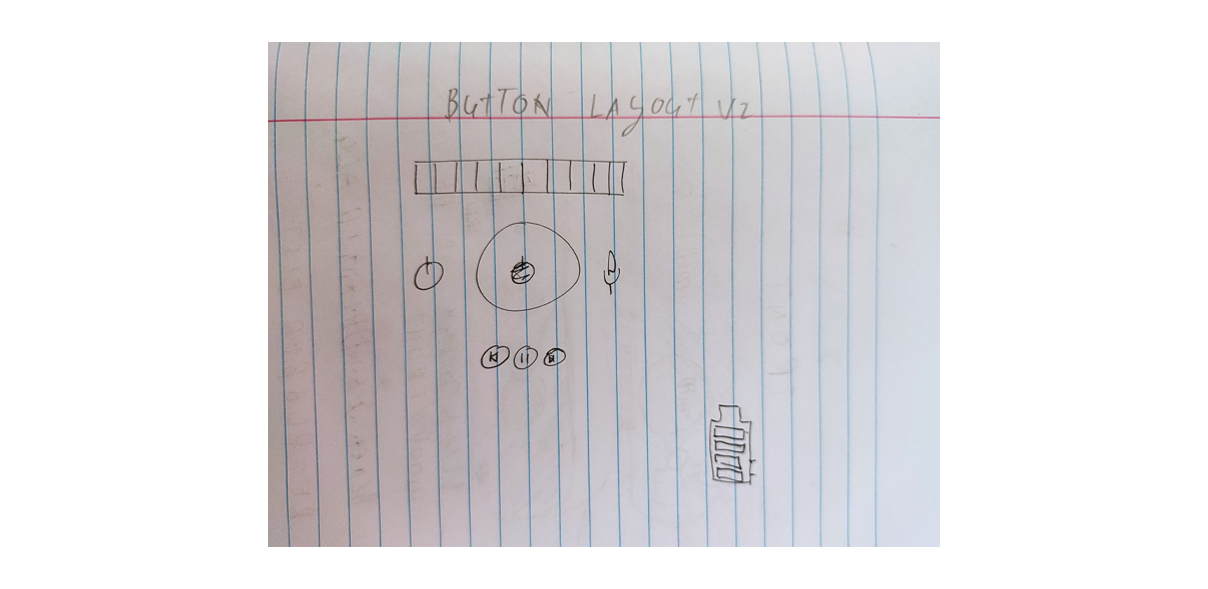 BUTTON LAYOUT V2